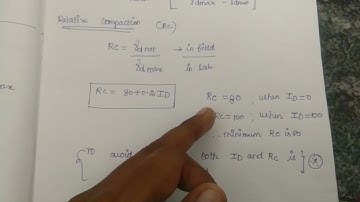 γdmax - γdmo
Relative Compaction (Rc)
Rc = γd nat → in field
γd max in Lab.
Rc = 80 + 0.2 ID
Rc = 80 , when ID = 0
Rc = 100 , when ID = 100
∴ minimum Rc is 80
To avoid both ID and Rc is